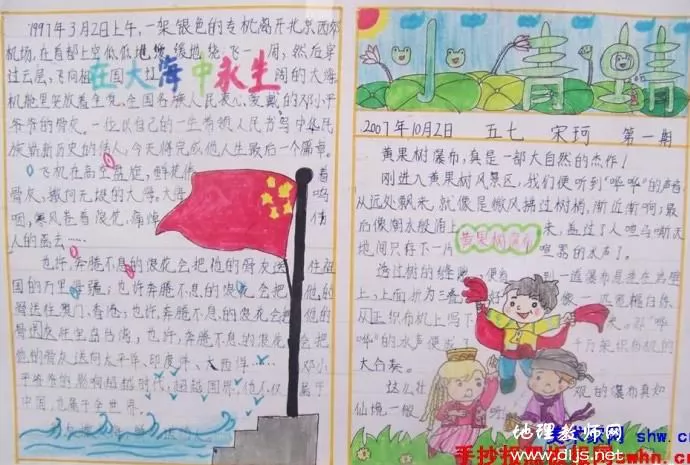 1997年3月2日上午,一架银色的专机离开北京西郊
机场,在首都上空低低地
缓缓地绕飞一周,然后穿
过云层,飞向祖国
阔的大海
在大海中永生
机舱里安放着
全国各族人民衷心爱戴的邓小平
爷爷的骨灰。一位以自己的一生带领人民书写中华民
族崭新历史的伟人,今天将完成他人生最后一个篇章。
飞机在高空盘旋,鲜花伴
着
骨灰,撒向无垠的大海,大海
呜
咽,寒风卷着浪花,痛悼
伟
人的离去……
也许,奔腾不息的浪花会把他的骨灰送
往祖
国的万里海疆;也许,奔腾不息的浪花会把
他的
骨灰送往澳门、香港;也许,奔腾不息的浪花会把他的
骨灰送往宝岛台湾,也许,奔腾不息的浪花
会把
他的骨灰送向太平洋、印度洋、大西洋……
邓小
平爷爷的影响超越时代,超越国界,他不仅属于
中国,也属于全世界。
小青蛙
2007年10月2日 五七 宋珂 第一期
黄果树瀑布,真是一部大自然的杰作!
刚进入黄果树风景区,我们便听到“哗哗”的声音
从远处飘来,就像是微风拂过树梢,渐近渐响;最
后像潮水般涌上
来,盖过了人喧马嘶天
黄果树瀑布
地间只存下一片
喧嚣的水声了。
透过树的缝隙,便看
到一道瀑布悬挂在岩壁
上,上面折为三叠,好
像一匹宽幅白练
从正织布机上泻下
来。那“哗
哗”的水声便成了
千万架织布机的
大合奏。
这么壮
观的瀑布真如
仙境一般
听
地理教师网
www.dljs.net
shw.c
whn.c